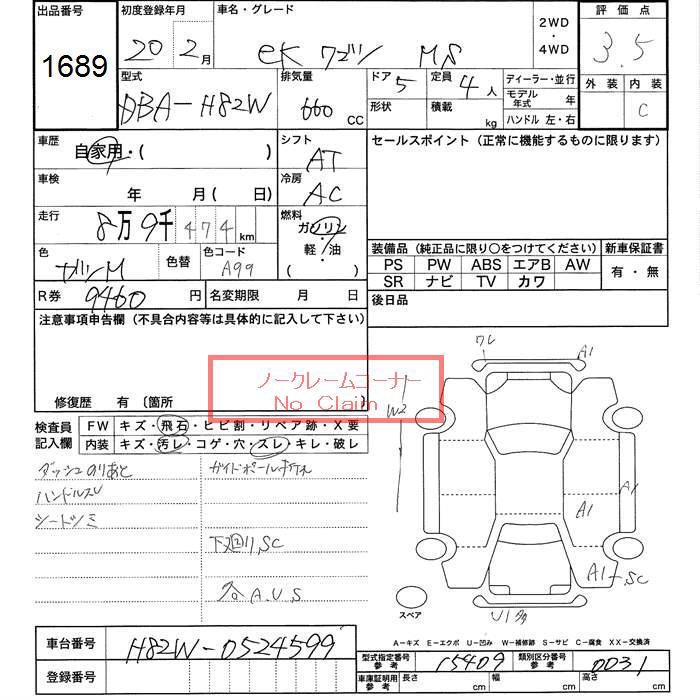 出品番号 初度登録年月 車名・グレード 2WD・4WD 評価点
1689 20年 2月 eK ワゴン MS 3.5
外装 内装 C
型式 排気量 ドア 5 定員 4人 ディーラー・並行
DBA-H82W 660 CC 形状 積載 kg モデル年式 年
ハンドル 左・右
車歴 自家用・( ) シフト AT セールスポイント(正常に機能するものに限ります)
車検 年 月( 日) 冷房 AC
走行 8万9千474km 燃料 ガソリン・軽・油 ( )
色 色替 色コード A99
装備品(純正品に限り○をつけてください) 新車保証書
PS PW ABS エアB AW 有・無
SR ナビ TV カワ
R券 9460円 名変期限 月 日 後日品
注意事項申告欄(不具合内容等は具体的に記入して下さい)
ノークレームコーナー
No Claim
修復歴 有〔箇所
検査員記入欄 FW キズ・飛石・ヒビ割・リペア跡・X要
内装 キズ・汚レ・コゲ・穴・スレ・キレ・破レ
ダッシュのりあと
ハンドルスレ
シートシミ
下廻り、SC
A.U.S
ワレ A1
W2
A1
A1
A1-SC
U1多
スペア
A-キズ E-エクボ U-凹み W-補修跡 S-サビ C-腐食 XX-交換済
車台番号 H82W-0524599
登録番号
型式指定番号 参考 15409 類別区分番号 参考 0031
車庫証明用 参考 長さ cm 幅 cm 高さ cm